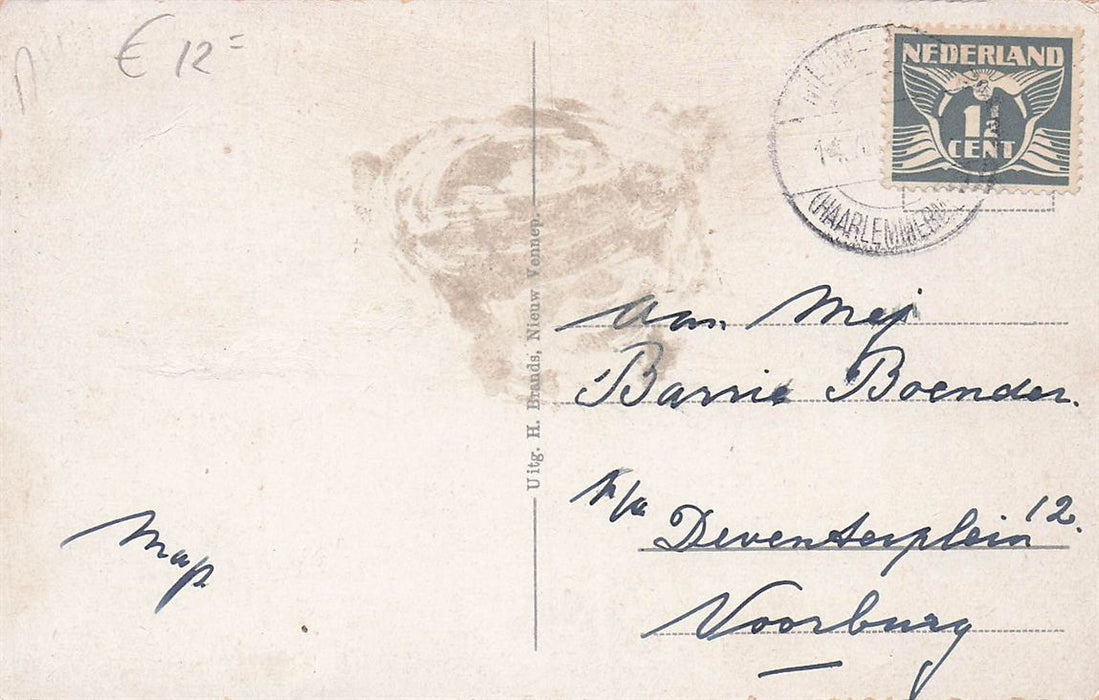 € 12=
NEDERLAND
1½
CENT
(HAARLEMMERM
Uitg. H. Brands, Nieuw Vennep.
Aan Mej
Barrie Boender.
p/a
Deventerplein 12.
Voorburg